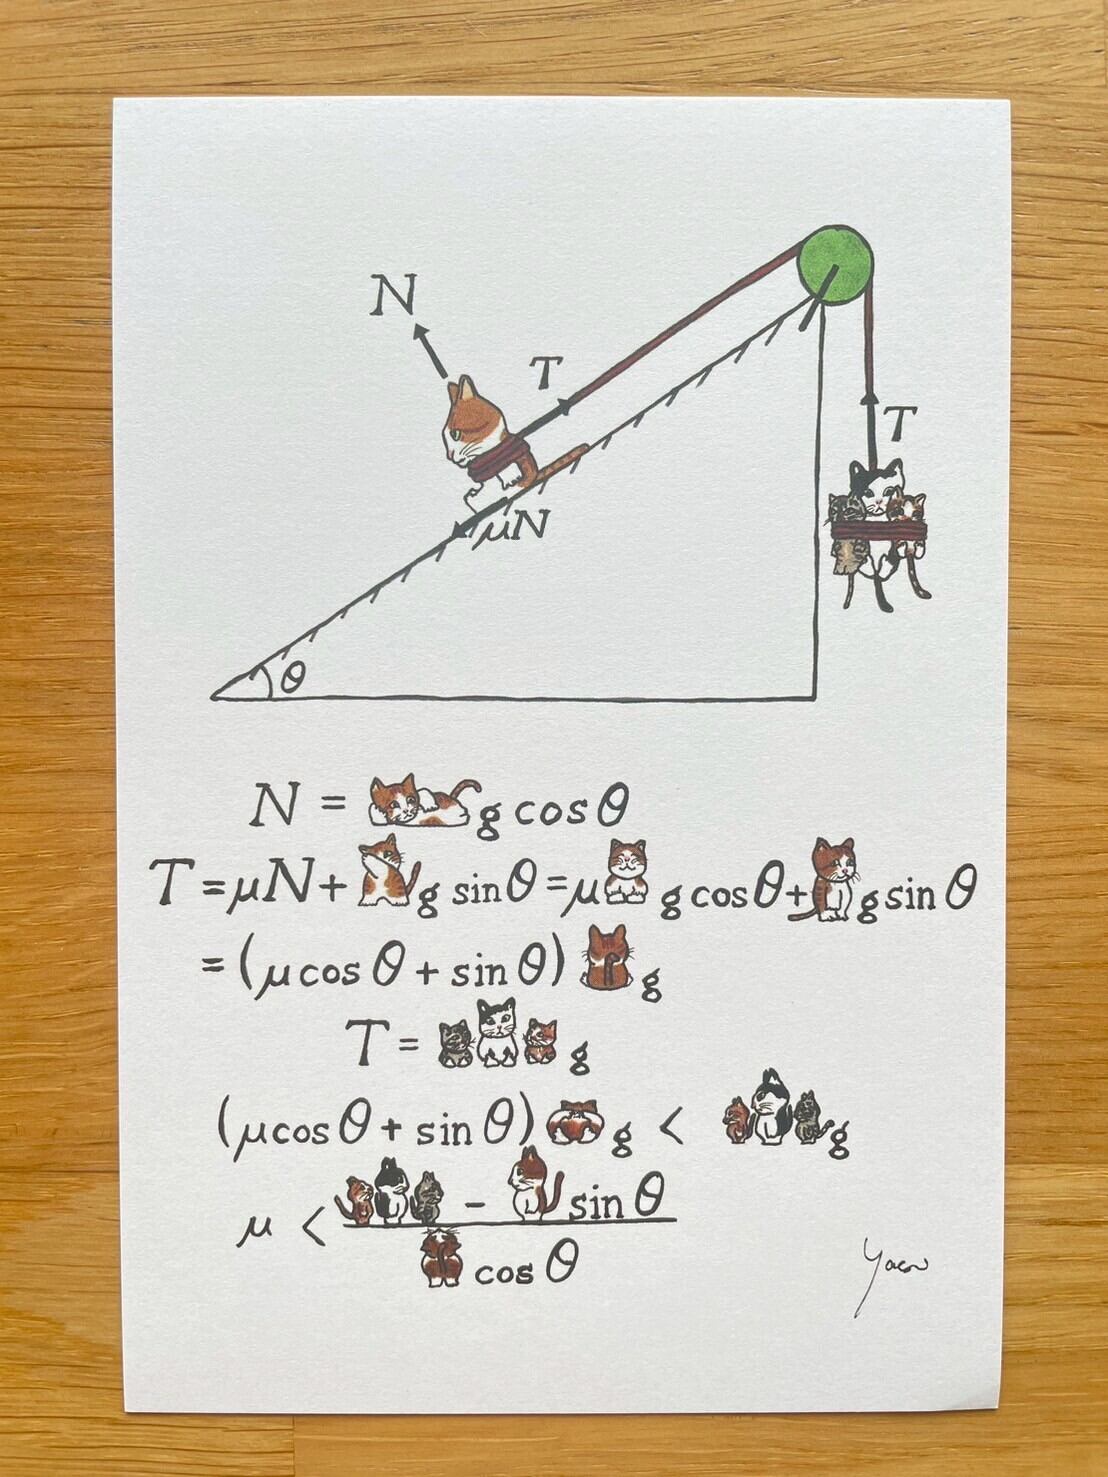 N
T
T
μN
θ
N = g cos θ
T = μN + g sin θ = μ g cos θ + g sin θ
= (μ cos θ + sin θ) g
T = g
(μ cos θ + sin θ) g < g
μ < - sin θ
cos θ
Yacv